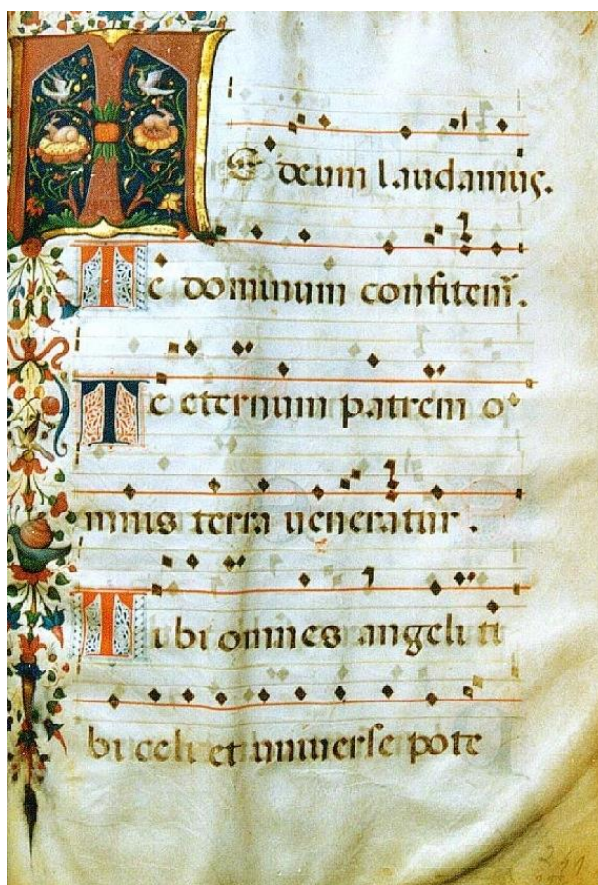 Te deum laudamus.
Te dominum confitem̄.
Te eternum patrem o
mnis terra ueneratur.
Tibi omnes angeli ti
bi celi et uniuerse pote